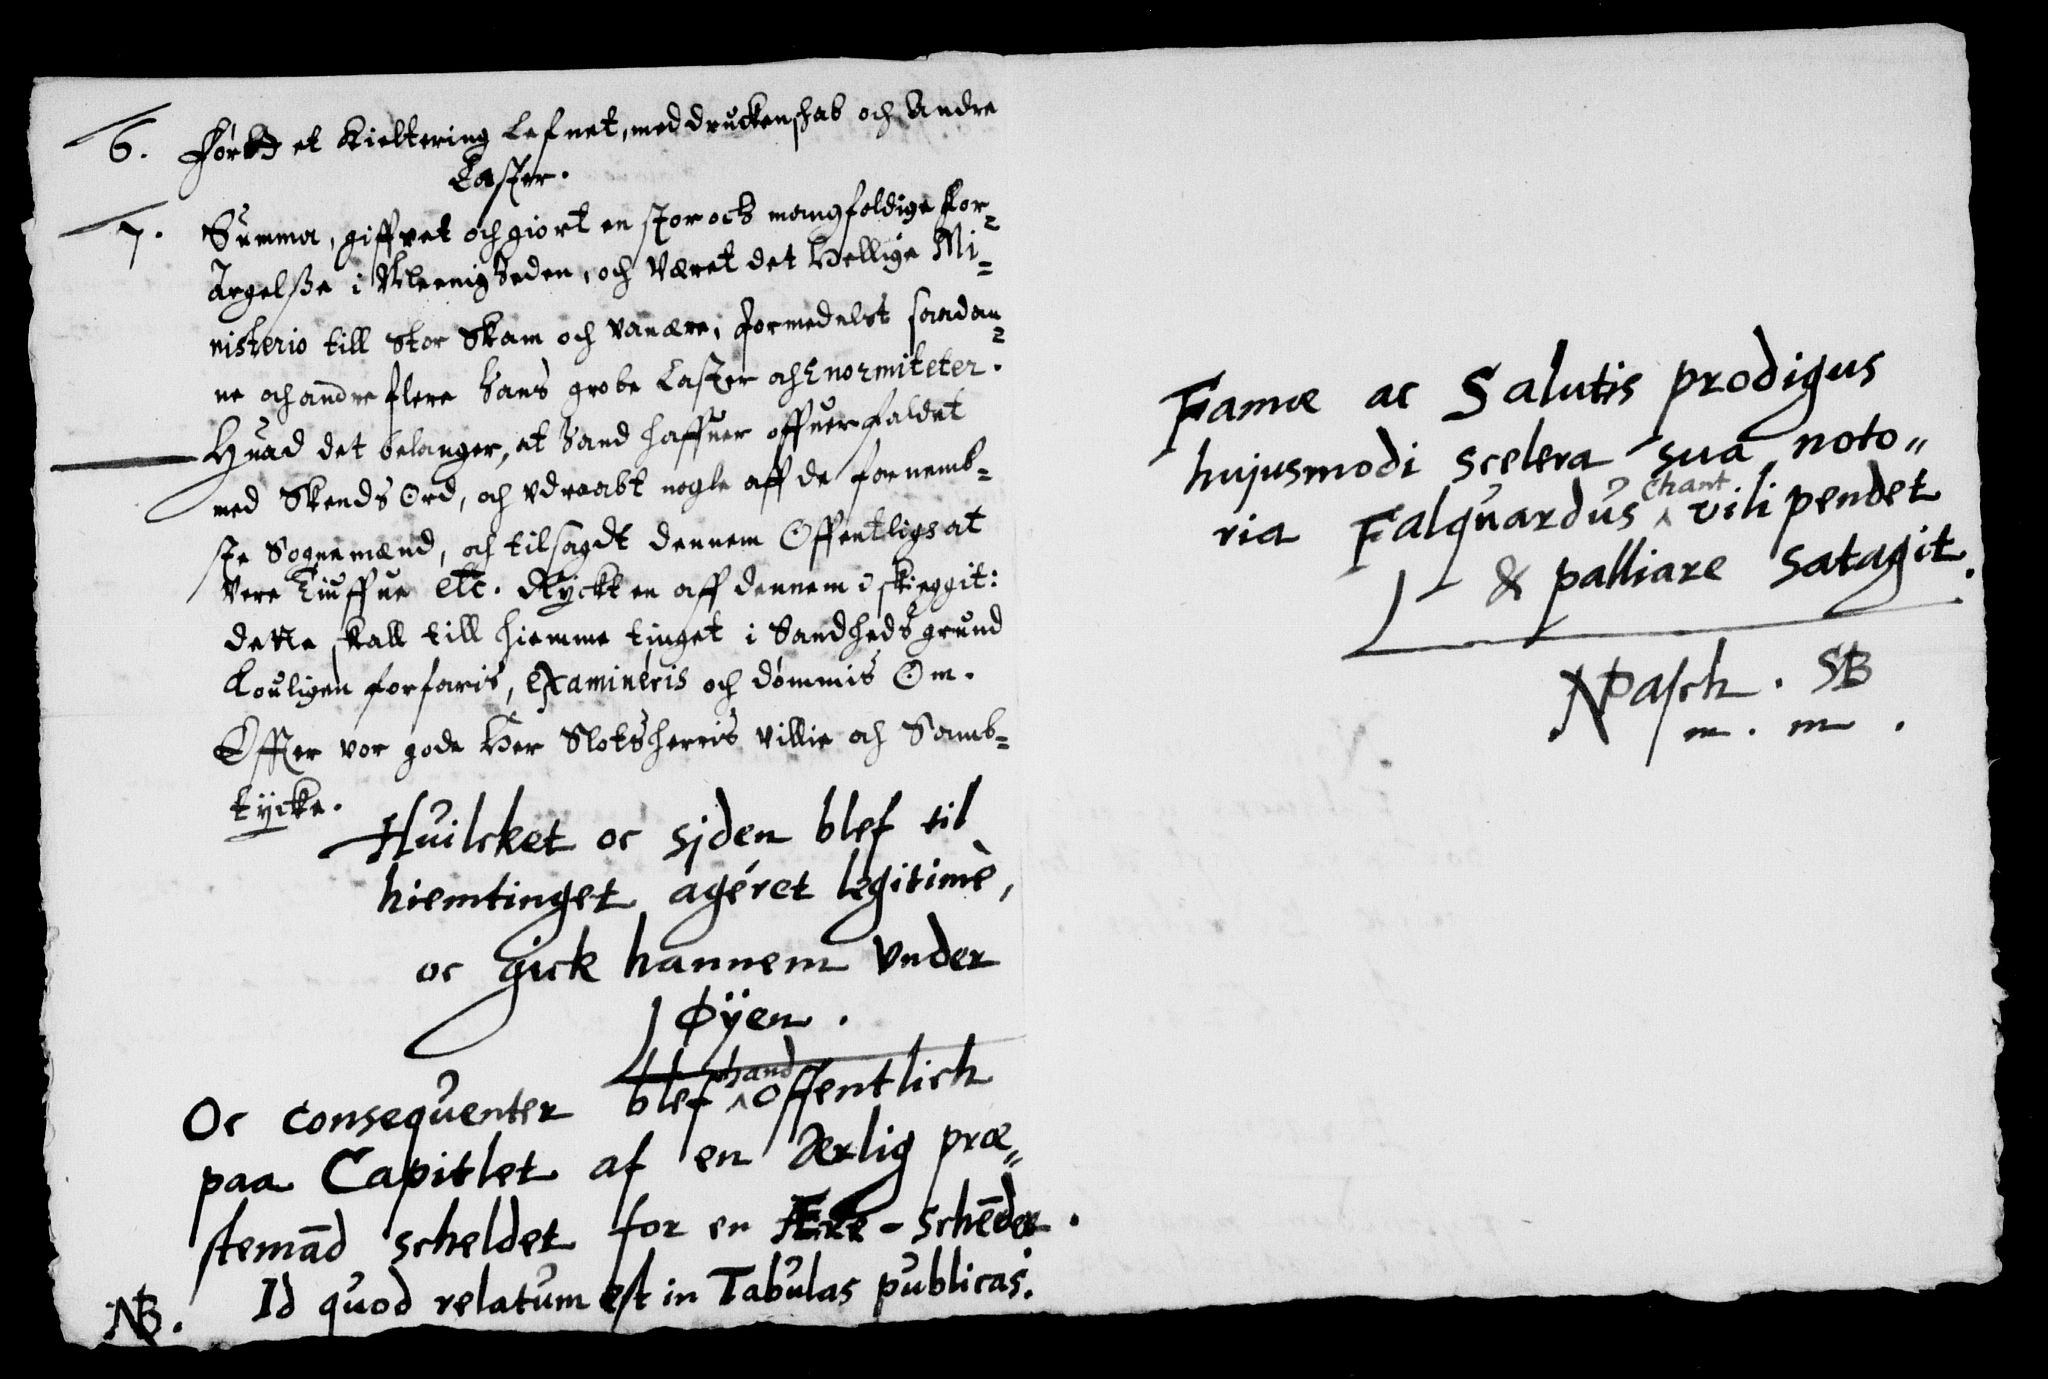 6. Førtt et Kieltering Lefnet, med druckenskab och Andre
Laster.
7. Summa, giffvet och giort en stor ock mangfoldige For-
Argelße i Meenigheden, och Været det Hellige Mi-
nisterio till Stor Skam och vanære, formedelst saadan-
ne och andre flere hans grobe Laster och Enormiteter.
Huad det belanger, at hand haffuer offuerfaldet
med Skends Ord, och vdraabt nogle aff de fornemb-
ste Sognemænd, och tilsagdt dennem Offentligs at
Vere Tiuffue etc. Ryckt en aff dennem i skiegget:
dette skall till hiemme tinget i Sandheds grund
Louligen forfaris, examineris och dømmis Om.
Effter vor gode Her Slotsherris villie och Samb-
tycke.
Huilcket oc sjden blef til
hiemtinget ageret legitimè,
oc gick hannem Vnder
Øyen.
Oc consequenter blef hand offentlich
paa Capitlet af en Ærlig præ-
stemãd scheldet for en Ære-schẽder.
NB. Id quod relatum est in Tabulas publicas.
Famæ ac Salutis prodigus
hujusmodi scelera sua noto-
ria Falquardus Chant. vilipendet
& palliare satagit.
NPasch. SB
m. m.